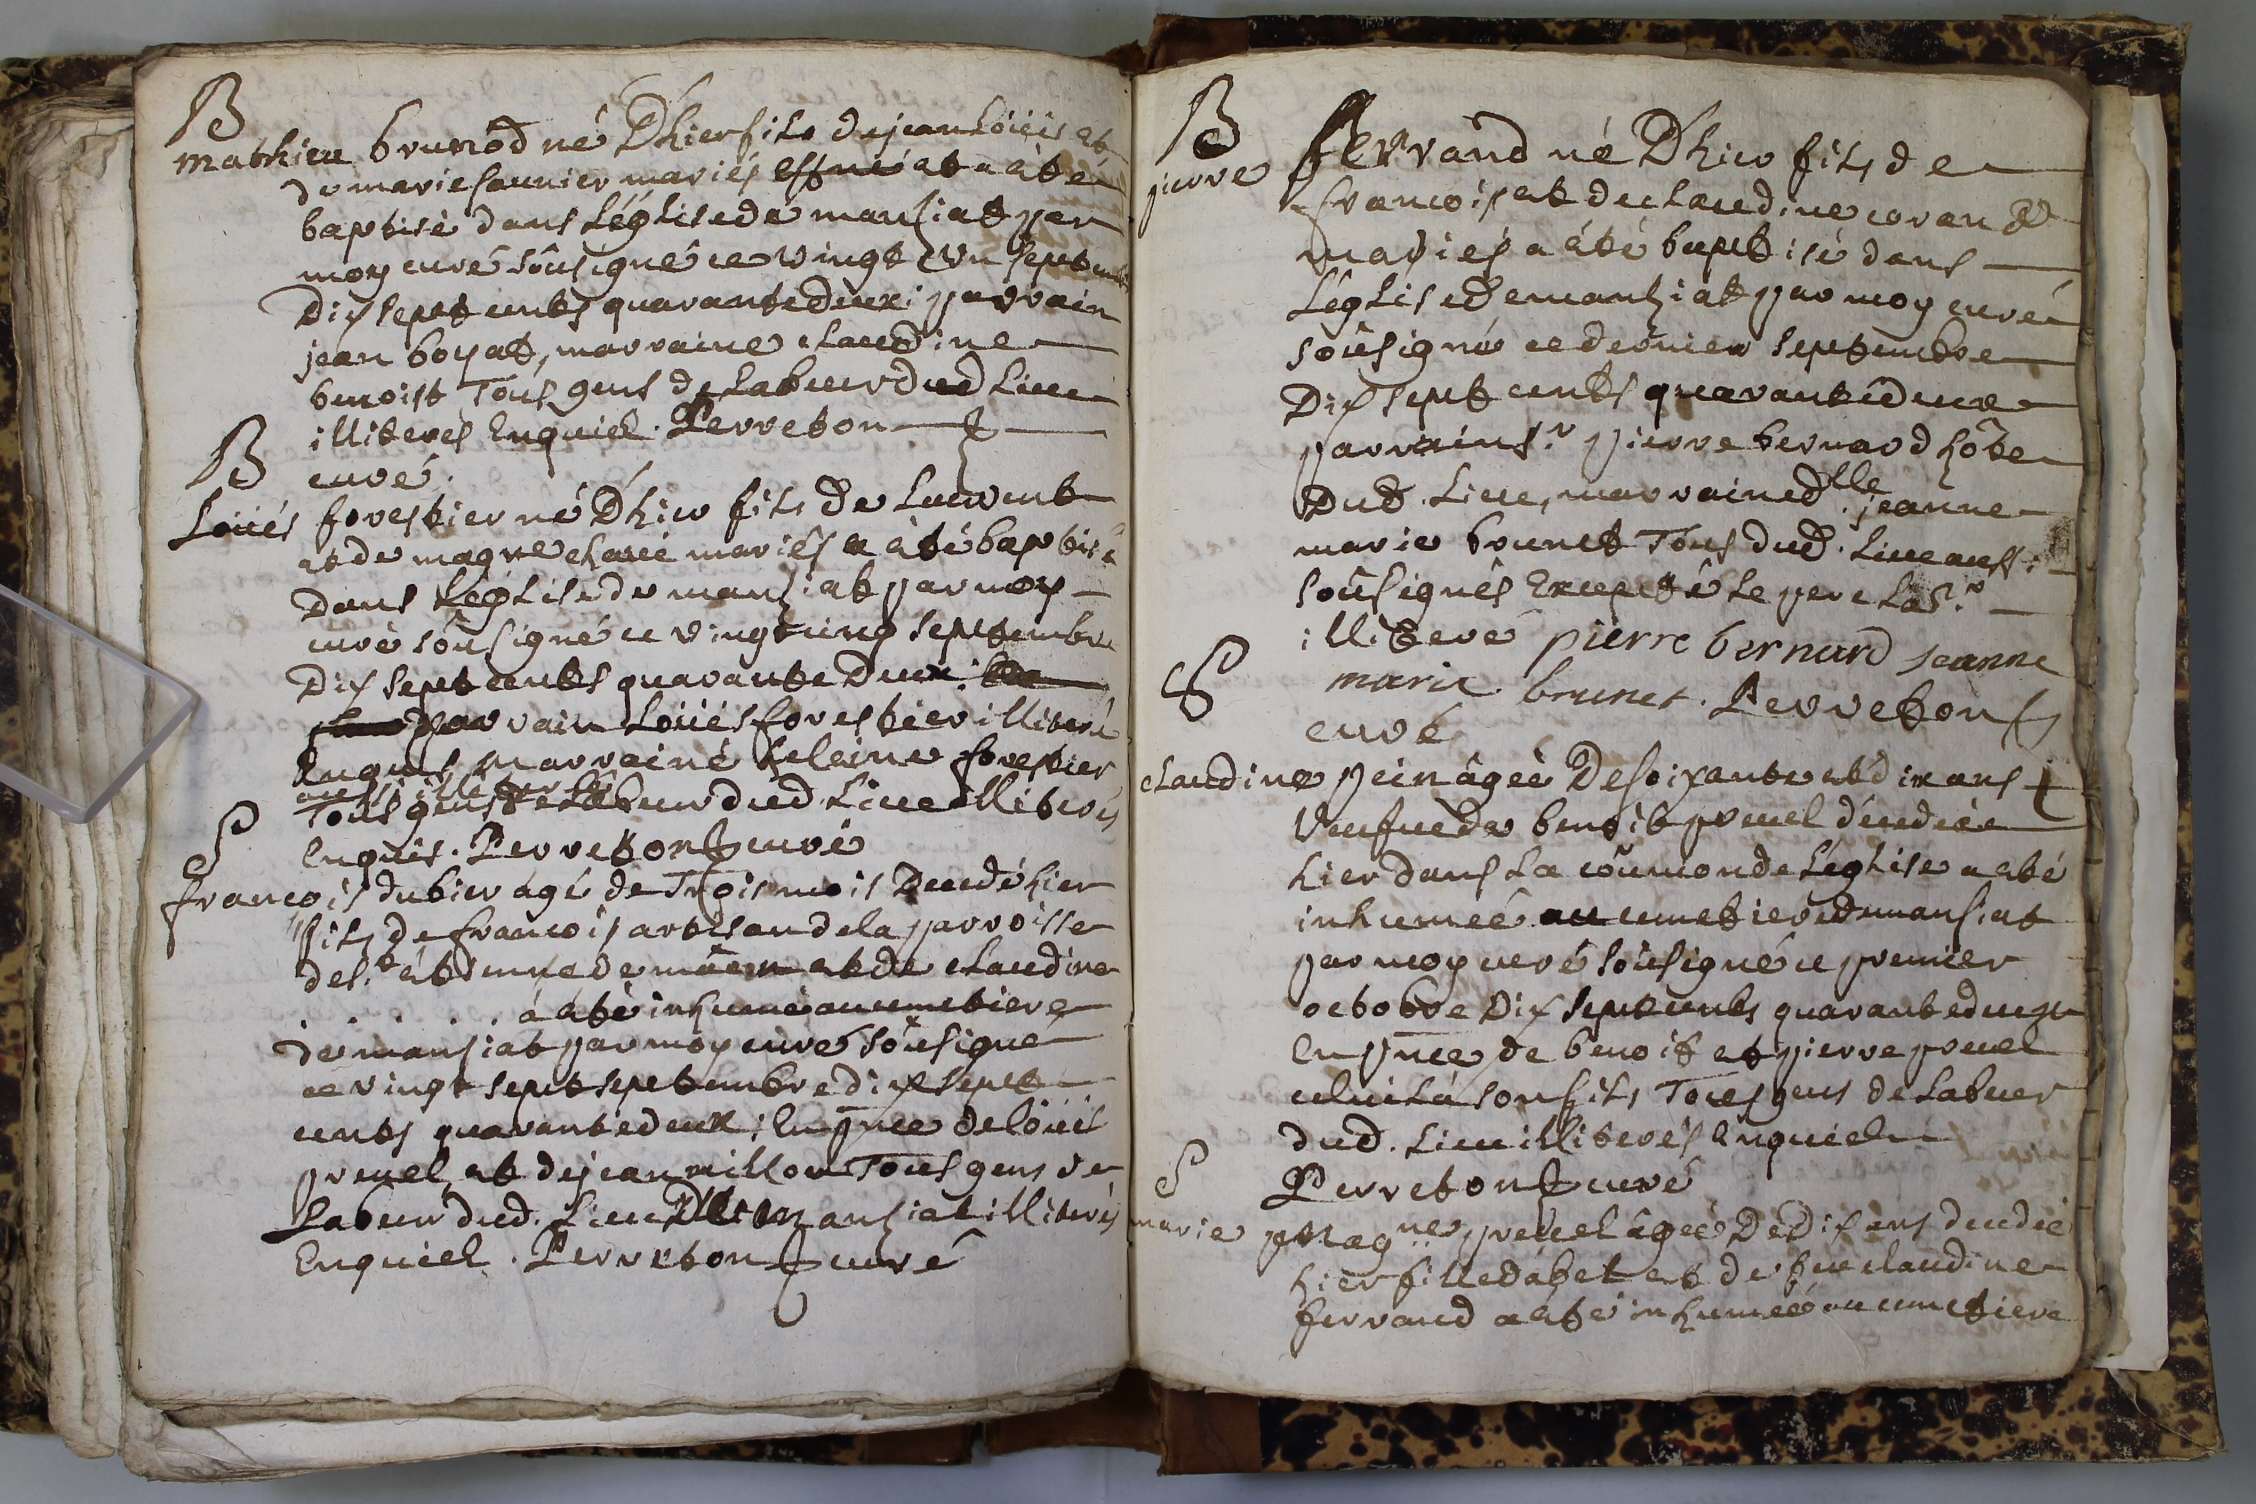 B
mathieu brunod né D'hier fils de jean Loüis et
de marie saunier mariés et a été
baptisé dans L'églisede manziat par
moy curé soûsigné ce vingt un septembre
Dix sept cents quarante deux ; parrain
jean boyat, marraine claudine
benoist Tous gens de Labeur dud Lieu
illiterés Enquiel. Perreton
curé.
B
Loüés forestier né D'hier fils de Laurent
et de magne chavé mariés a été baptisé
Dans L'église de manziat par moy
curé soûsigné ce vingtcinq septembre
Dix sept cents quarante Deux ;
parrain Loüés forestier illiteré
Enquis, marraine heleine forestier
aussi
Tous gens de Labeur dud. Lieu illiterés
Enquis. Perreton curé
S
francois dubier âgé de Trois mois Decedé hier
fils de francois artisan de la parroisse
de s.t étienne de et de claudine
. . . . . a été inhumé au cimetiere
de manziat par moy curé soûsigné
ce vingt sept septembre dix sept
cents quarante deux ; En pnce de Loüis
preuel et de jean millon Tous gens de
Labeur dud. Lieu De manziat illiterés
Enquiel. Perreton curé
B
pierre ferrand né D'hier fils de
francois et de claudine
mariés a été baptisé dans
L'église de manziat par moy curé
soûsigné ce dernier septembre
Dix sept cents quarante deux
parrain s.r pierre bernard hôte
Dud. Lieu, marraine d.lle jeanne
marie brunet Tous dud. Lieu aussi
soûsignés Excepté Le pere
illiteré pierre bernard jeanne
marie brunet. Perreton
curé
S
claudine pein âgée De soixante et dix ans
veufue de benoit preuel décedée
hier dans La coûmon de L'église a été
inhumée au cimetiere de mansiat
par moy curé soûsigné ce premier
octobre Dix sept cents quarante deux
En pnce de benoit et pierre preuel
celui Là son fils Tous gens de Labeur
dud. Lieu illiterés Enquiel
Perreton curé
S
marie preuel âgée De Dix ans decedée
hier fille d'abel et de feu claudine
ferrand a été inhumée au cimetiere